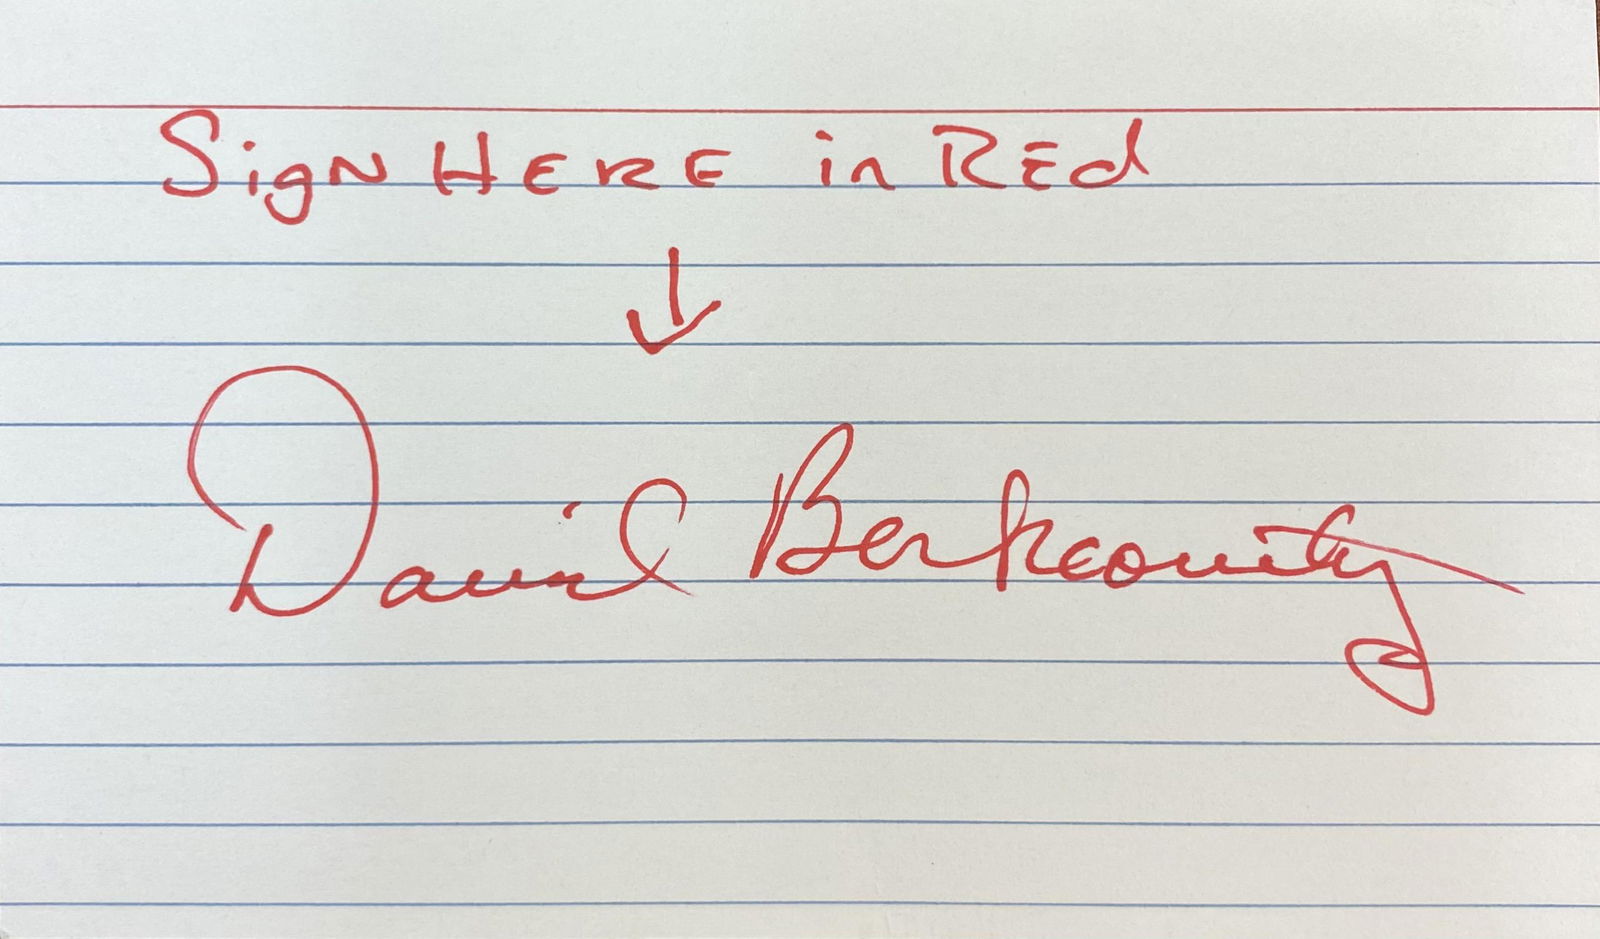 SigN HERE in REd
David Berkowitz